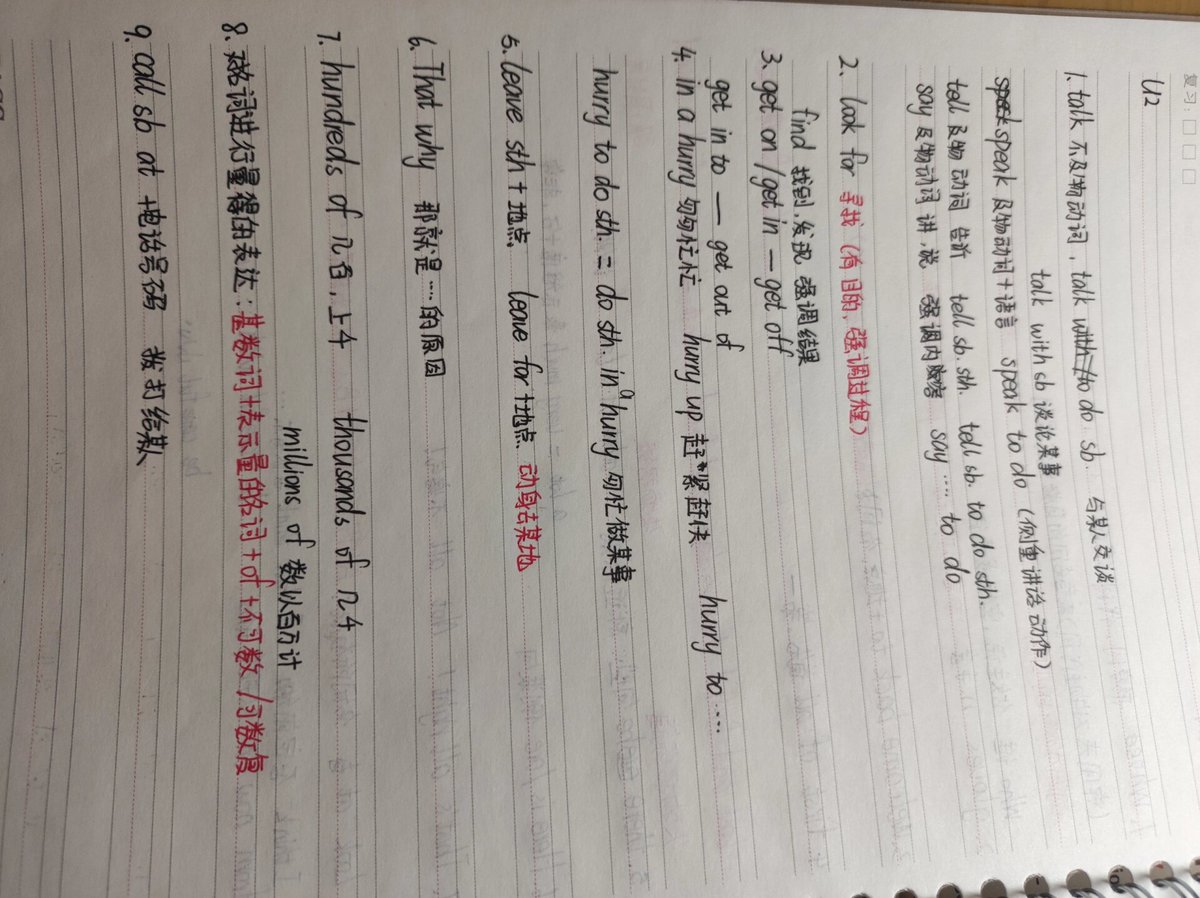 复习:
U2
1. talk 不及物动词, talk with/to do sb. 与某人交谈
talk with sb 谈论某事
speak speak 及物动词+语言 speak to do (侧重讲话动作)
tell 及物动词 告诉 tell sb. sth. tell sb. to do sth.
say 及物动词 讲,说 强调内容 say .... to do
2. look for 寻找 (有目的, 强调过程)
find 找到,发现 强调结果
3. get on / get in — get off
get in to — get out of
4. in a hurry 匆匆忙忙 hurry up 赶紧赶快 hurry to ....
hurry to do sth. = do sth. in a hurry 匆忙做某事
5. leave sth + 地点 leave for +地点. 动身去某地
6. That why 那就是....的原因
7. hundreds of 几百,上千 thousands of 几千
millions of 数以百万计
8. 名词进行量的表达: 基数词+表示量的名词+of+不可数/可数复
9. call sb at +电话号码 拨打给某人